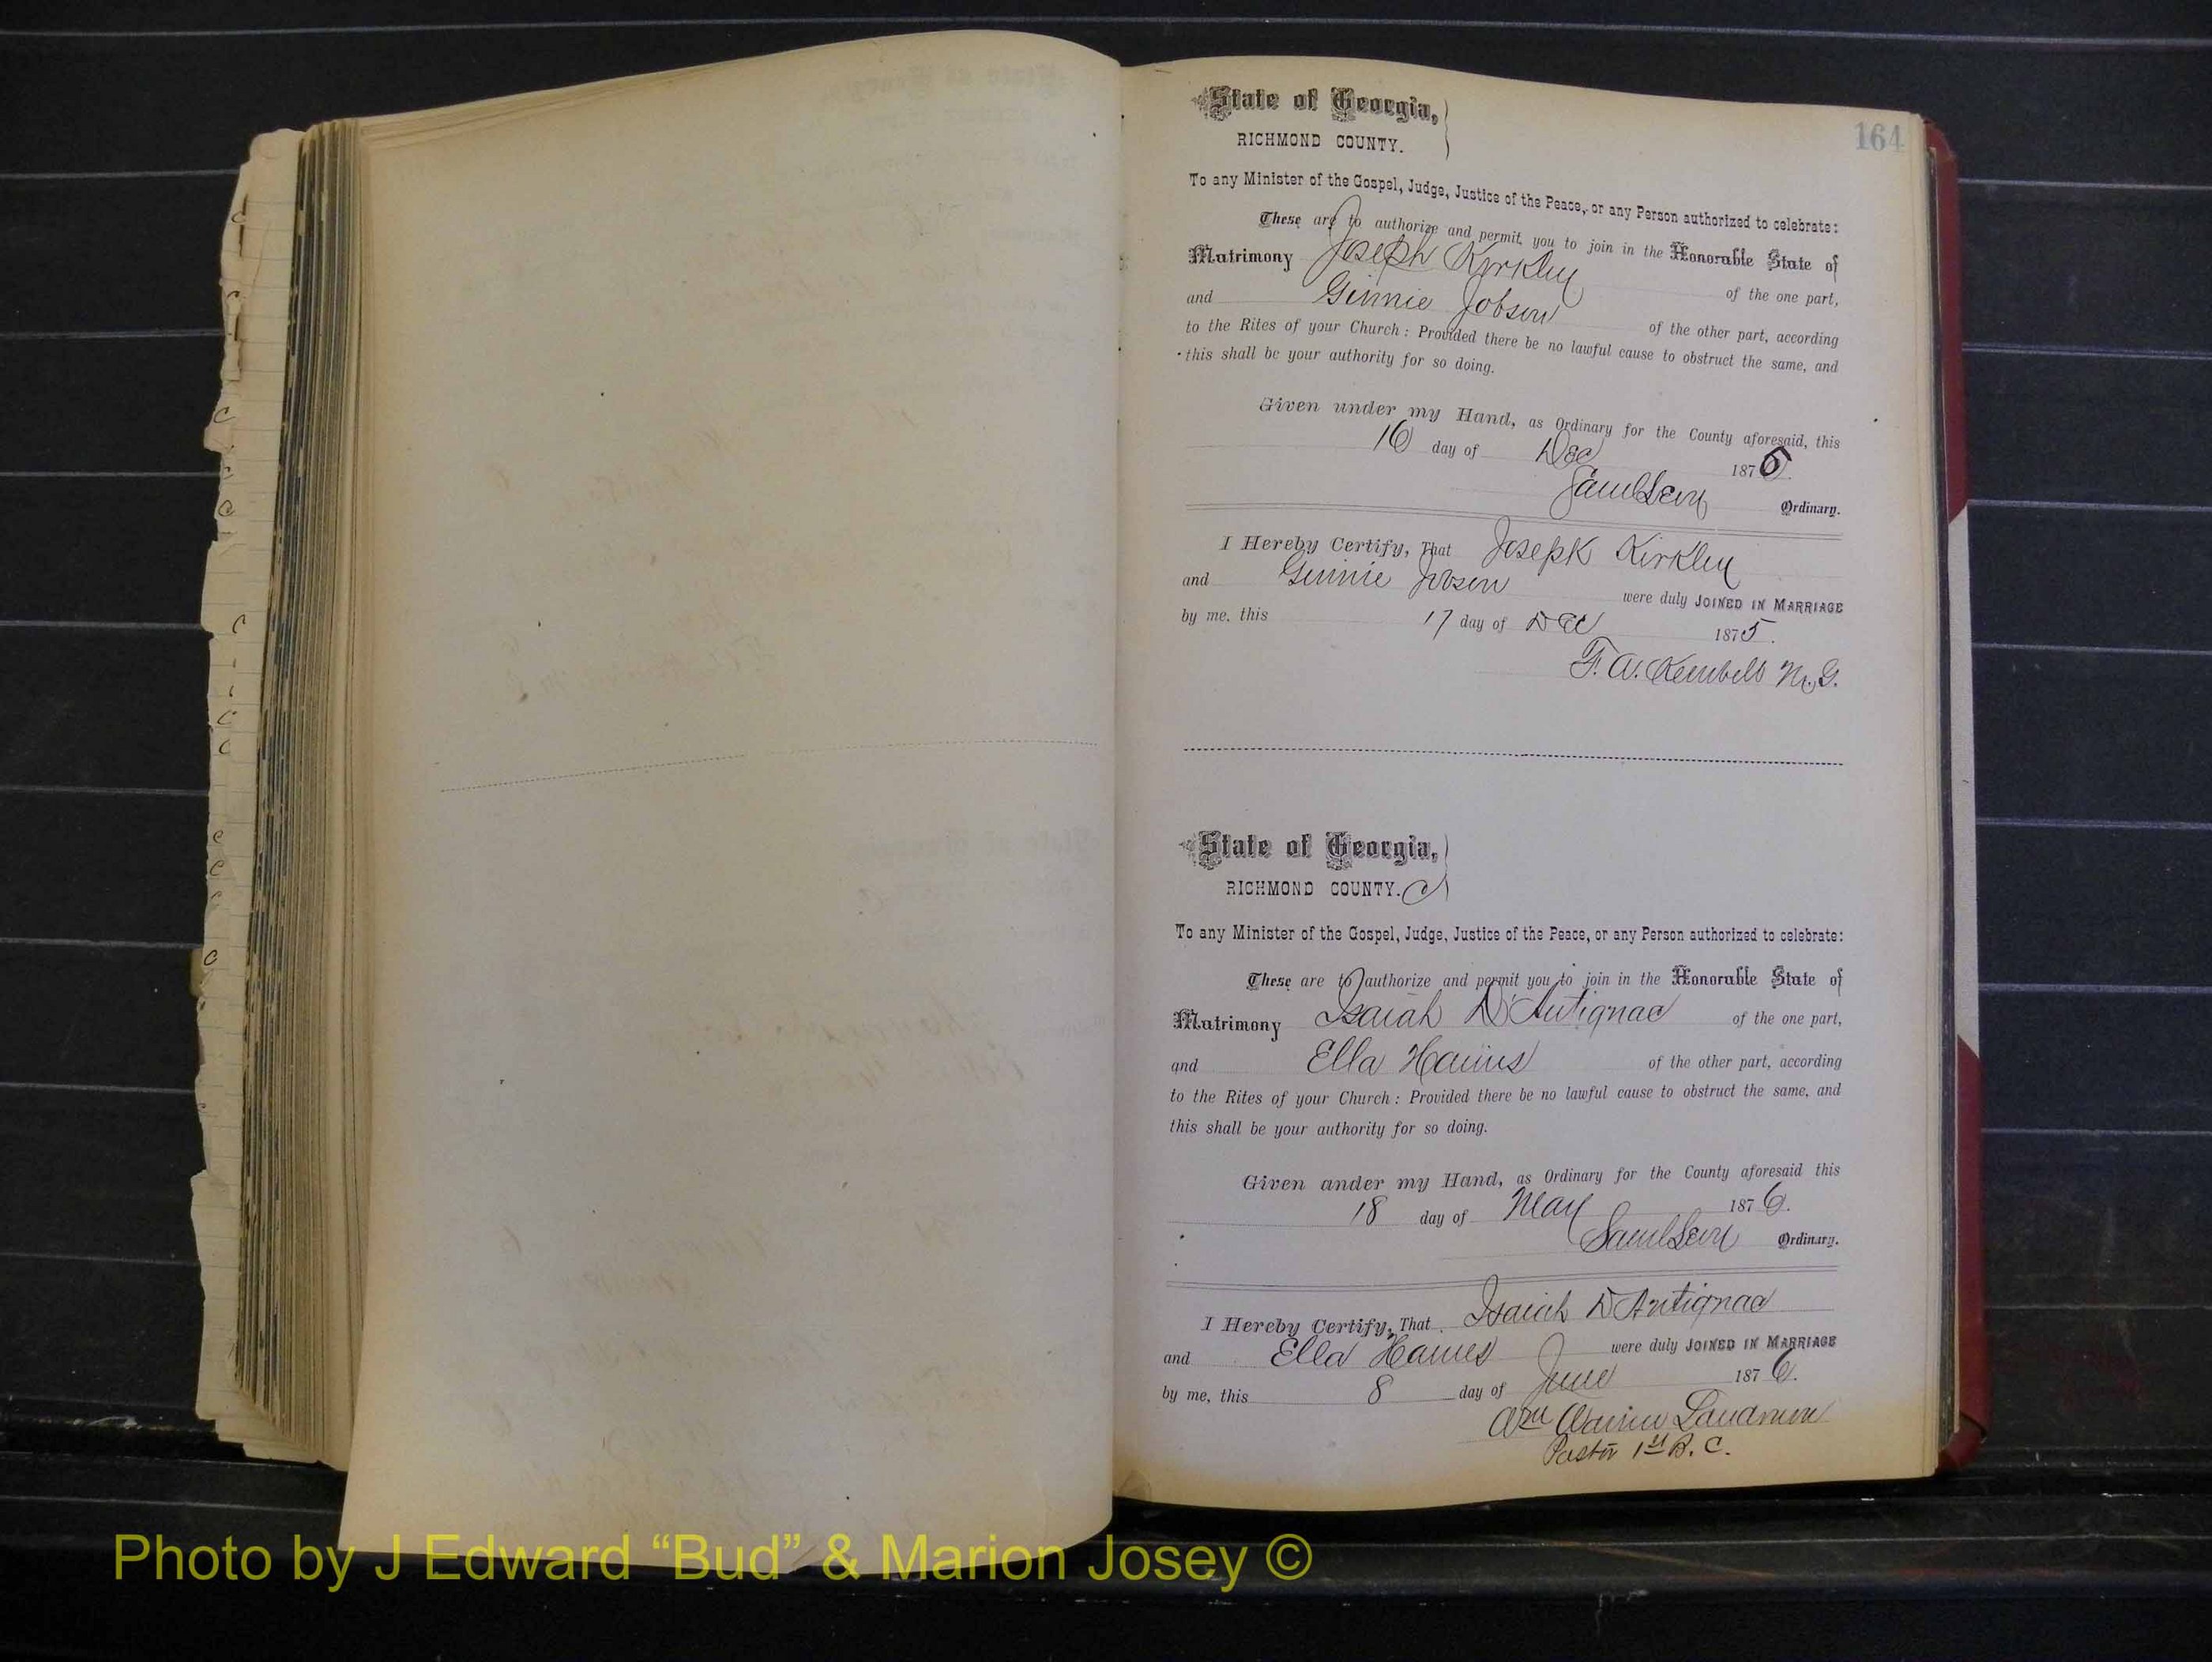 164
State of Georgia,
RICHMOND COUNTY.
To any Minister of the Gospel, Judge, Justice of the Peace, or any Person authorized to celebrate:
These are to authorize and permit you to join in the Honorable State of
Matrimony Joseph Kirkley of the one part,
and Ginnie Jobson of the other part, according
to the Rites of your Church: Provided there be no lawful cause to obstruct the same, and
this shall be your authority for so doing.
Given under my Hand, as Ordinary for the County aforesaid, this
16 day of Dec 1875.
Saml Levy Ordinary.
I Hereby Certify, That Joseph Kirkley
and Ginnie Jobson were duly JOINED IN MARRIAGE
by me, this 17 day of Dec 1875.
F. A. Kimbell M. G.
State of Georgia,
RICHMOND COUNTY. C
To any Minister of the Gospel, Judge, Justice of the Peace, or any Person authorized to celebrate:
These are to authorize and permit you to join in the Honorable State of
Matrimony Isaiah D'Antignac of the one part,
and Ella Hains of the other part, according
to the Rites of your Church: Provided there be no lawful cause to obstruct the same, and
this shall be your authority for so doing.
Given under my Hand, as Ordinary for the County aforesaid this
18 day of May 1876.
Saml Levy Ordinary.
I Hereby Certify, That Isaiah D'Antignac
and Ella Haines were duly JOINED IN MARRIAGE
by me, this 8 day of June 1876.
Wm Warren Landrum
Pastor 1st B. C.
Photo by J Edward “Bud” & Marion Josey ©